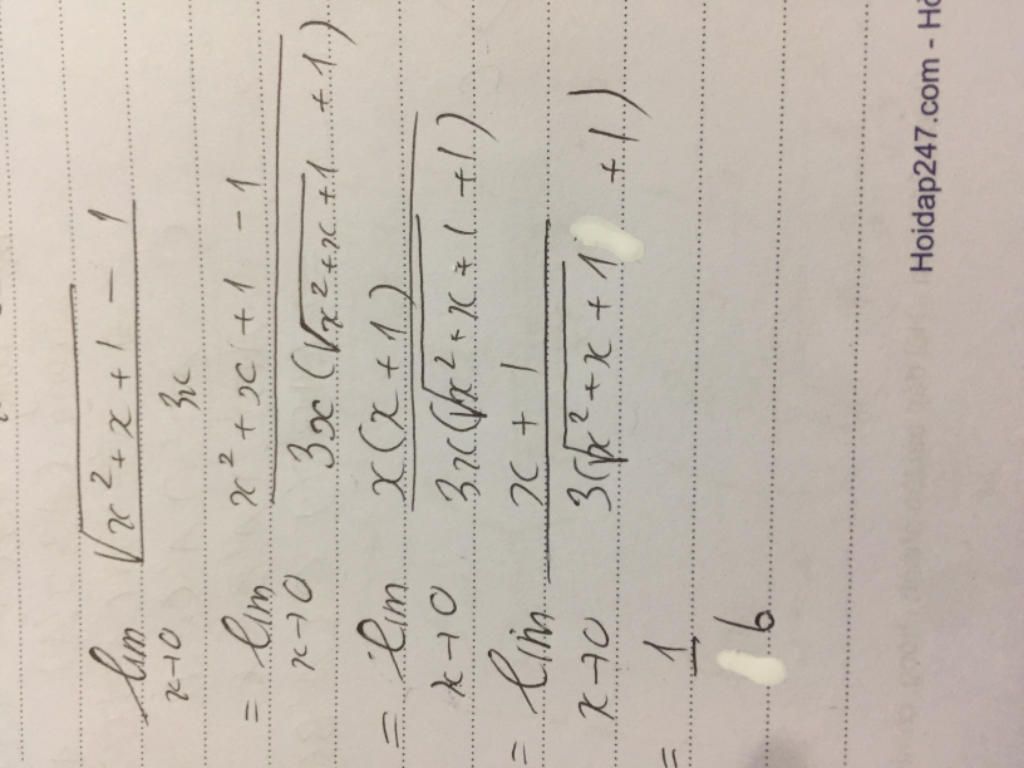 lim √(x² + x + 1) − 1
x→0 3x
= lim x² + x + 1 − 1
x→0 3x(√(x² + x + 1) + 1)
= lim x(x + 1)
x→0 3x(√(x² + x + 1) + 1)
= lim x + 1
x→0 3(√(x² + x + 1) + 1)
= 1
6
Hoidap247.com - Hỏ